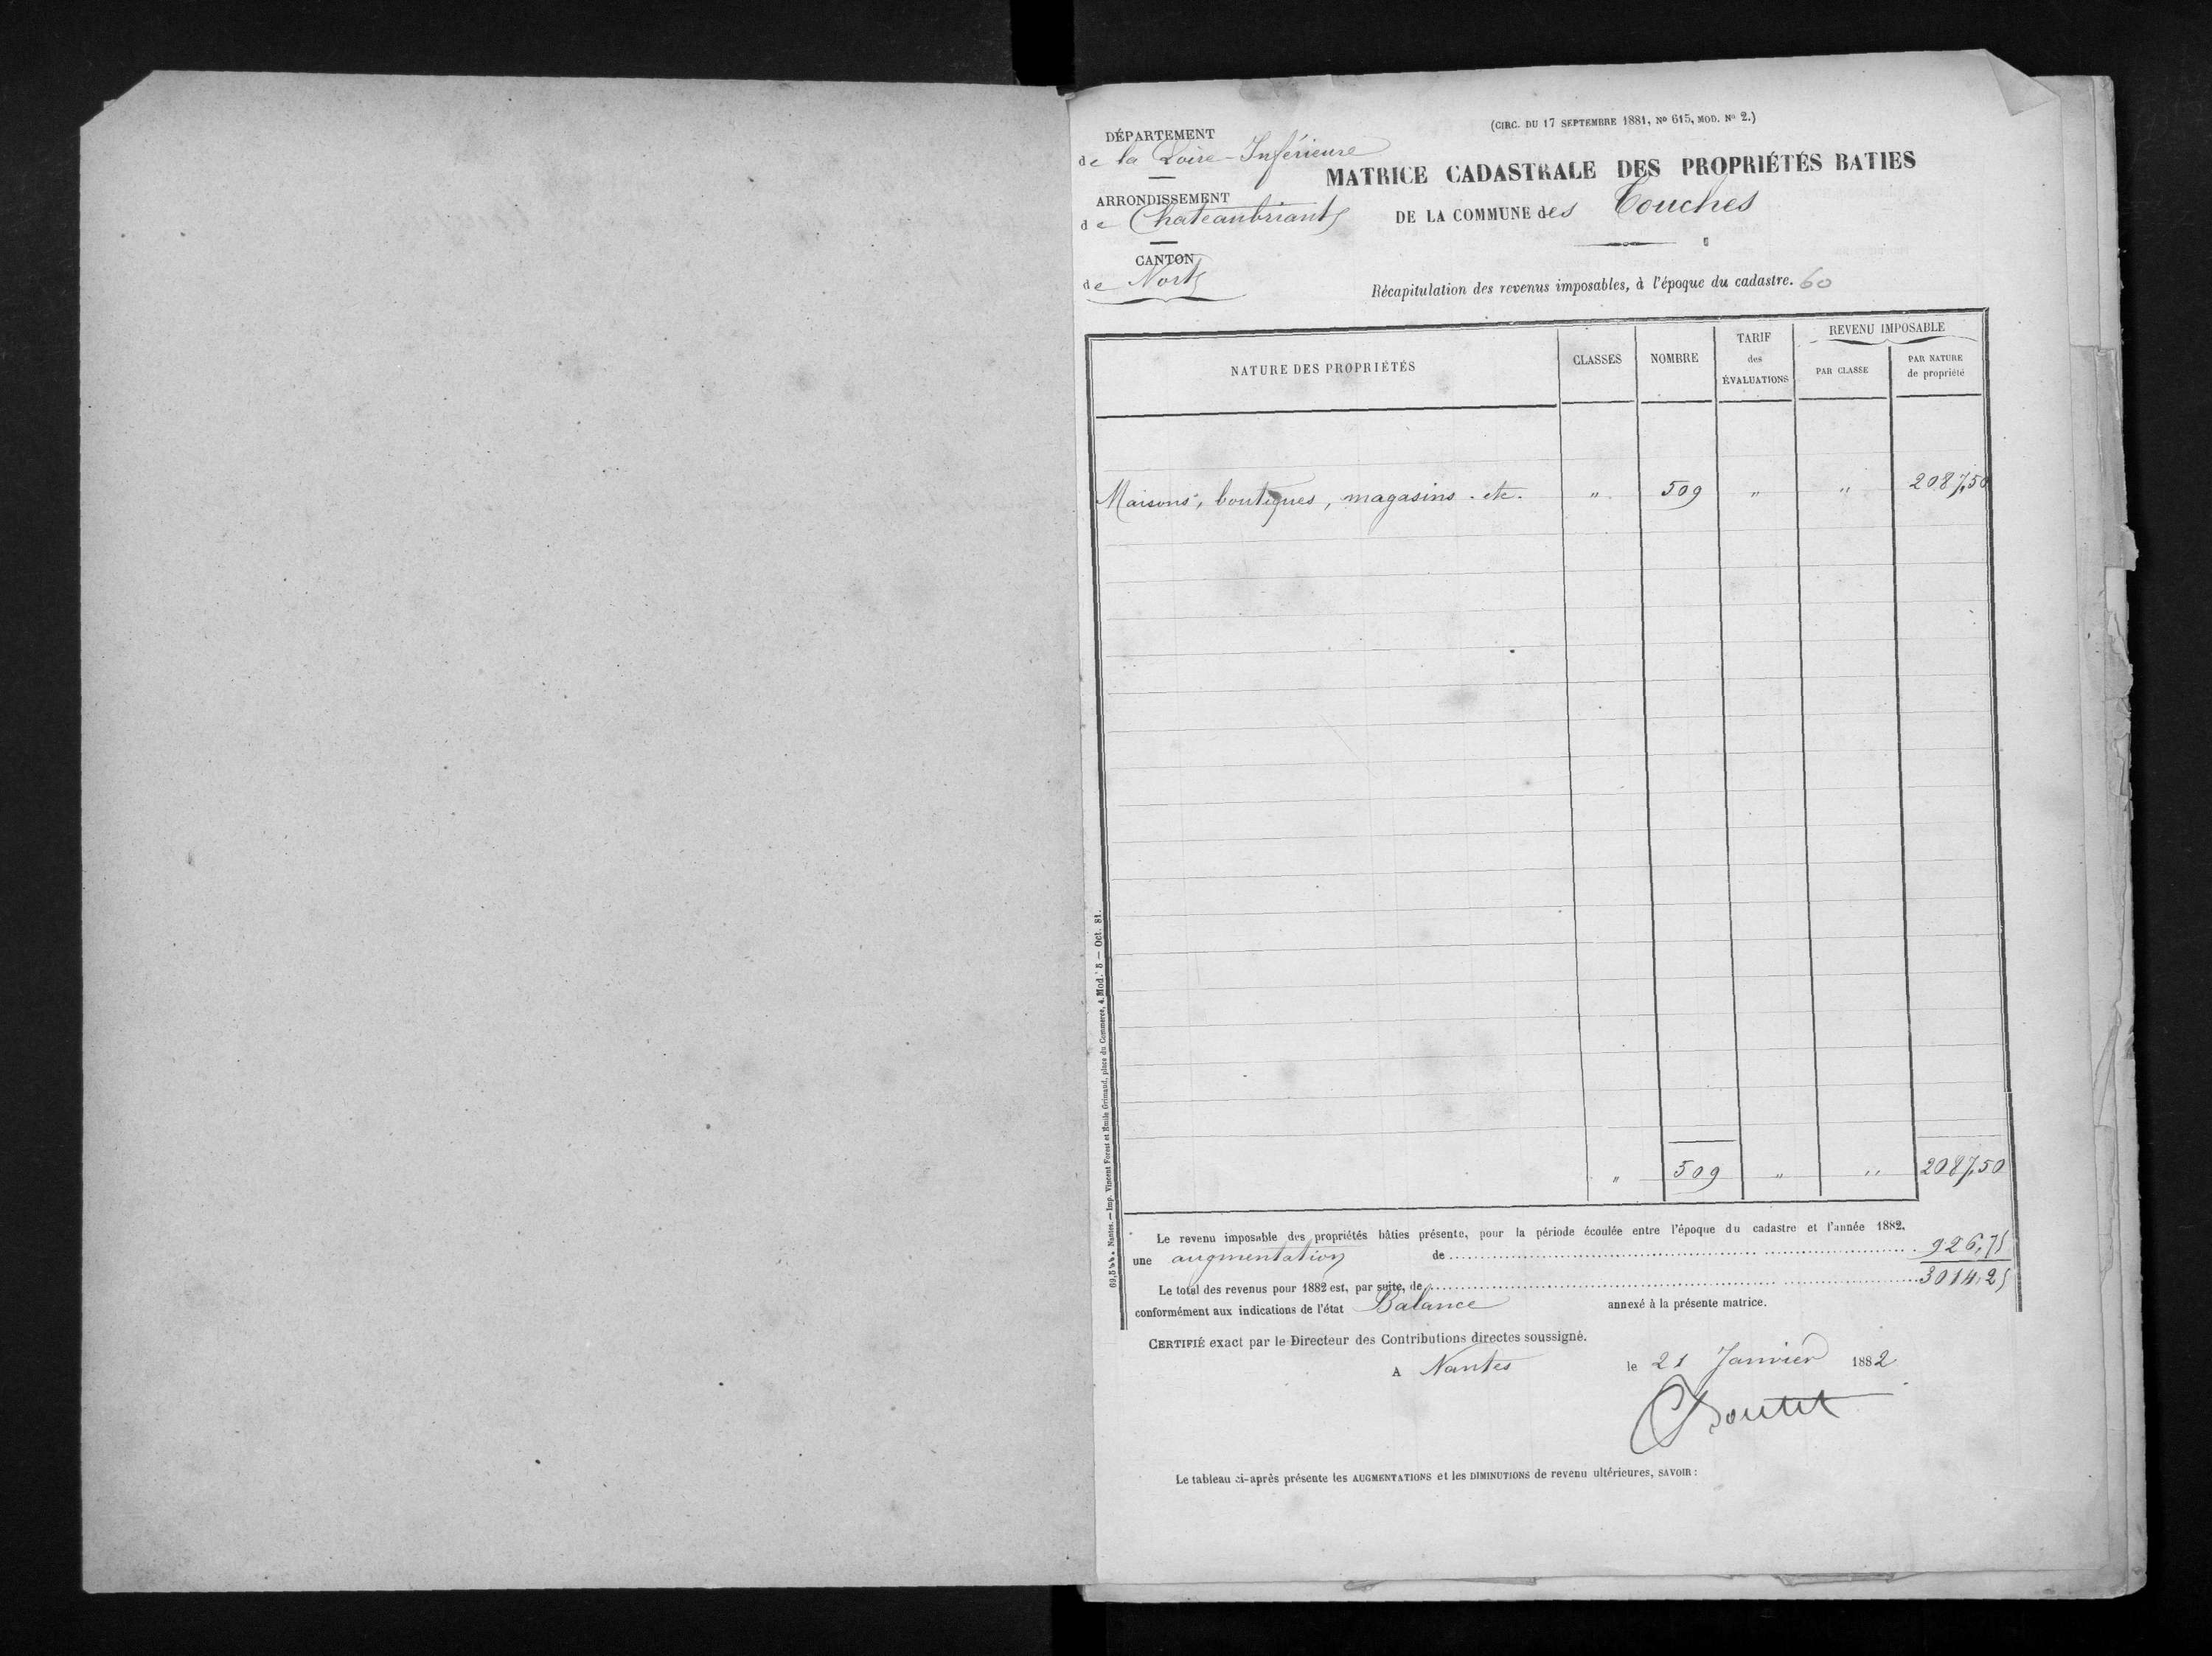 (CIRC. DU 17 SEPTEMBRE 1881, No 615, MOD. No 2.)
DÉPARTEMENT
de la Loire-Inférieure
ARRONDISSEMENT
de Chateaubriant
CANTON
de Nort
MATRICE CADASTRALE DES PROPRIÉTÉS BATIES
DE LA COMMUNE des Touches
Récapitulation des revenus imposables, à l'époque du cadastre. 60
NATURE DES PROPRIÉTÉS CLASSES NOMBRE TARIF des ÉVALUATIONS REVENU IMPOSABLE
PAR CLASSE PAR NATURE de propriété
Maisons, boutiques, magasins. etc. " 509 " " 2087,50
" 509 " " 2087,50
Le revenu imposable des propriétés bâties présente, pour la période écoulée entre l'époque du cadastre et l'année 1882,
une augmentation de 926,75
Le total des revenus pour 1882 est, par suite, de 3014,25
conformément aux indications de l'état Balance annexé à la présente matrice.
CERTIFIÉ exact par le Directeur des Contributions directes soussigné.
A Nantes le 21 Janvier 1882
Le tableau ci-après présente les AUGMENTATIONS et les DIMINUTIONS de revenu ultérieures, SAVOIR :
Nantes. — Imp. Vincent Forest et Émile Grimaud, place du Commerce, 4. Mod. 5 — Oct. 81.